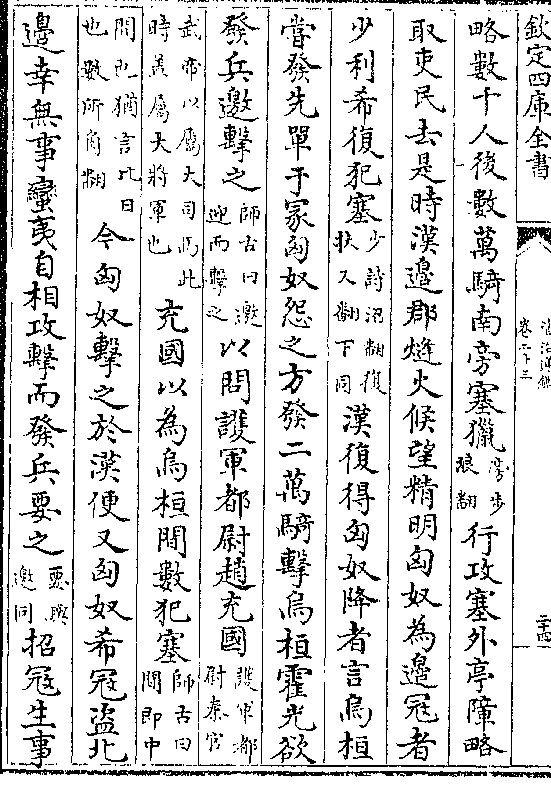 欽定四庫全書
資治通鑑
卷二十三
二十四
略數十人後數萬騎南旁塞獵旁步浪翻行攻塞外亭障略
取吏民去是時漢邊郡燧火候望精明匈奴為邊寇者
少利希復犯塞少詩沼翻復扶又翻下同漢復得匈奴降者言烏桓
嘗發先單于冢匈奴怨之方發二萬騎擊烏桓霍光欲
發兵邀擊之師古曰邀迎而擊之以問護軍都尉趙充國護軍都尉秦官
武帝以屬大司馬此時蓋屬大將軍也充國以為烏桓間數犯塞師古曰間即中
間也猶言比日也數所角翻今匈奴擊之於漢便又匈奴希寇盜北
邊幸無事蠻夷自相攻擊而發兵要之要與邀同招寇生事